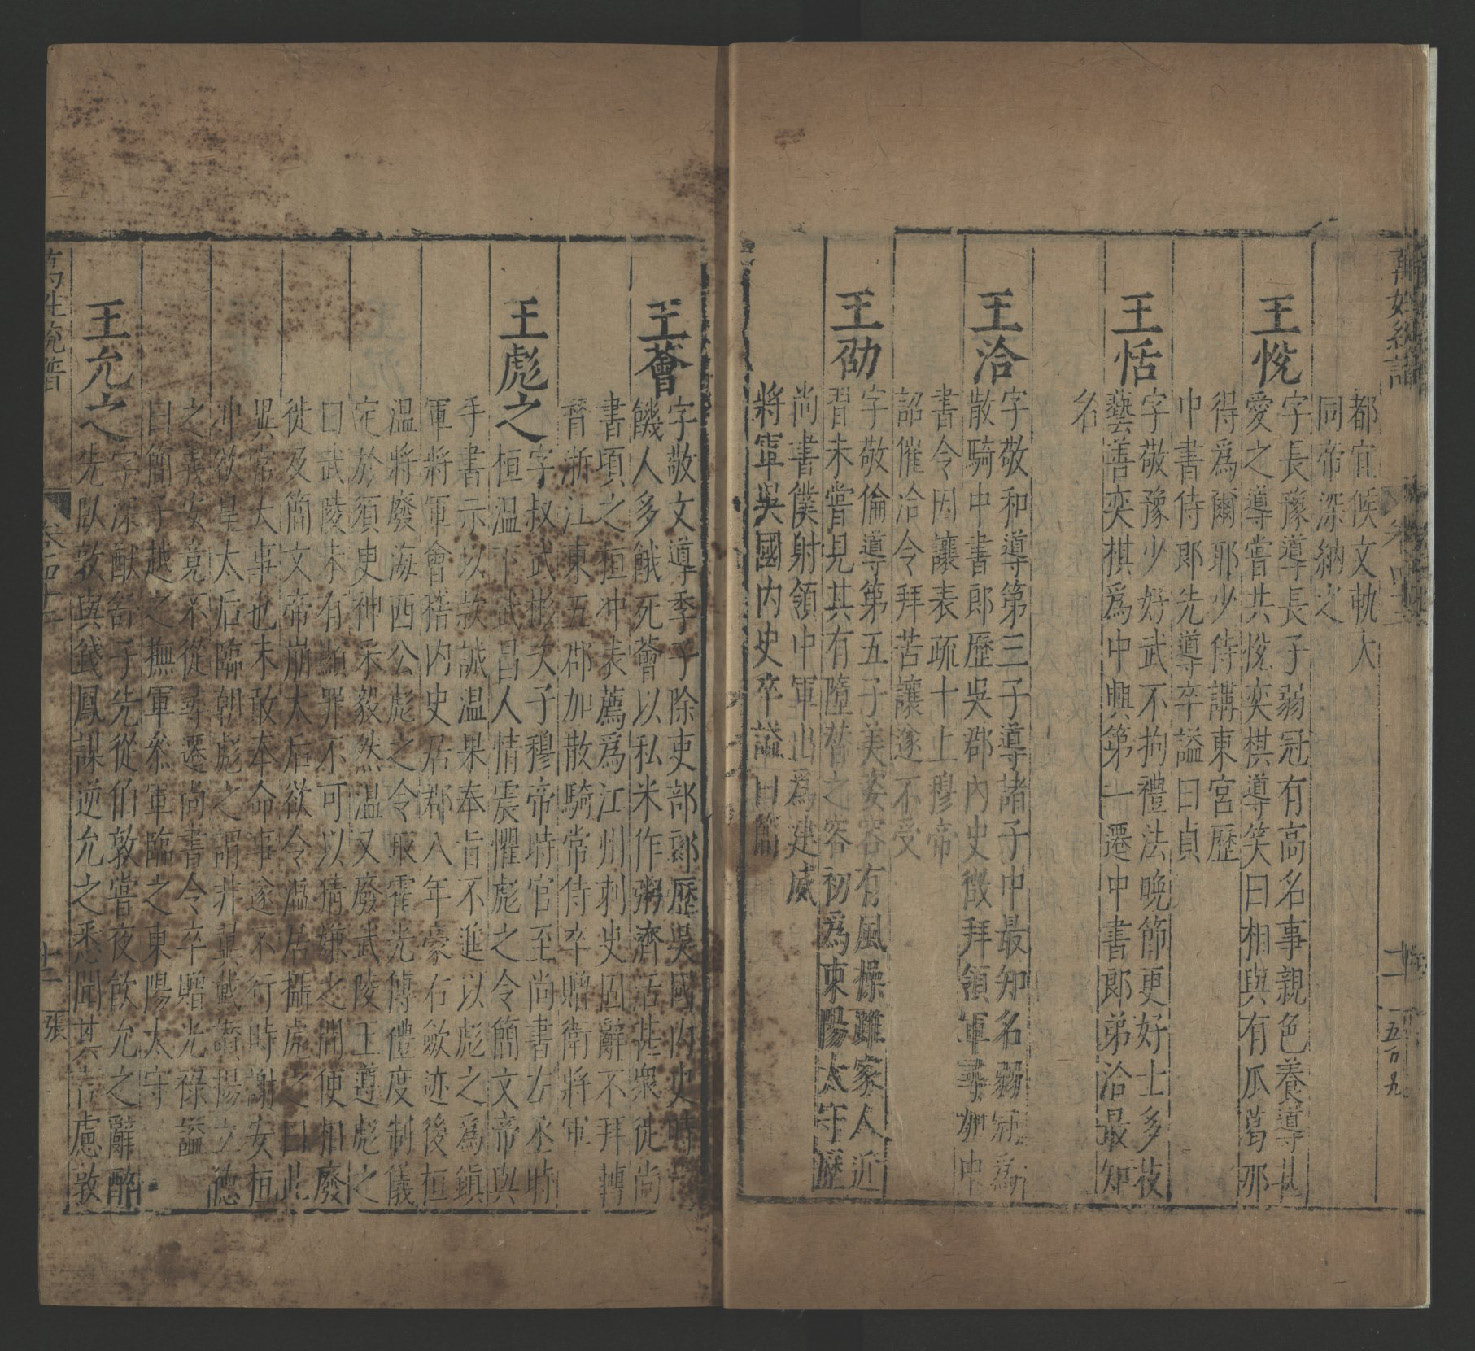 都宜候文軌大
同帝深納之
王悅
字長豫導長子弱冠有高名事親色養導甚
愛之導嘗共悅奕棋導笑曰相與有瓜葛那
得為爾耶少侍講東宮歷
中書侍郎先導卒謚曰貞
王恬
字敬豫少好武不拘禮法晚節更好士多技
藝善奕棋為中興第一遷中書郎弟洽最知
名
王洽
字敬和導第三子導諸子中最知名弱冠為
散騎中書郎歷吳郡內史徵拜領軍尋加中
書令因讓表疏十上穆帝
詔催洽令拜苦讓遂不受
王劭
字敬倫導第五子美姿容有風操雖家人近
習未嘗見其有隋替之容初為東陽太守歷
尚書僕射領中軍出為建威
將軍吳國內史卒謚曰簡
王薈
字敬文導季子除吏部郎歷吳國內史時
饑人多餓死薈以私米作粥濟活甚眾徙尚
書頃之桓冲表薦為江州刺史固辭不拜轉
督浙江東五郡加散騎常侍卒贈衛將軍
王彪之
字叔武彬次子穆帝時官至尚書左丞時
桓溫下武昌人情震懼彪之令簡文帝與
手書示以款誠温果奉旨不進以彪之為鎮
軍將軍會稽內史居郡八年豪右斂迹後桓
温將廢海西公彪之令取霍光傳禮度制儀
定於須臾神采毅然温又廢武陵王遵彪之
曰武陵未有顯罪不可以猜嫌之間便相廢
徙及簡文帝崩太后欲令溫居攝彪之曰此
異常大事也未敢奉命事遂不行時謝安桓
冲欲皇太后臨朝彪之謂非並戴讚揚立德
之義安竟不從尋遷尚書令卒贈光祿謚
曰簡子越之撫軍參軍臨之東陽太守
王允之
字深猷舒子先從伯敦嘗夜飲允之辭醉
先臥敦與錢鳳謀逆允之悉聞其言慮敦
萬姓統譜
卷四十
十二
張
萬姓統譜
十一
五百九